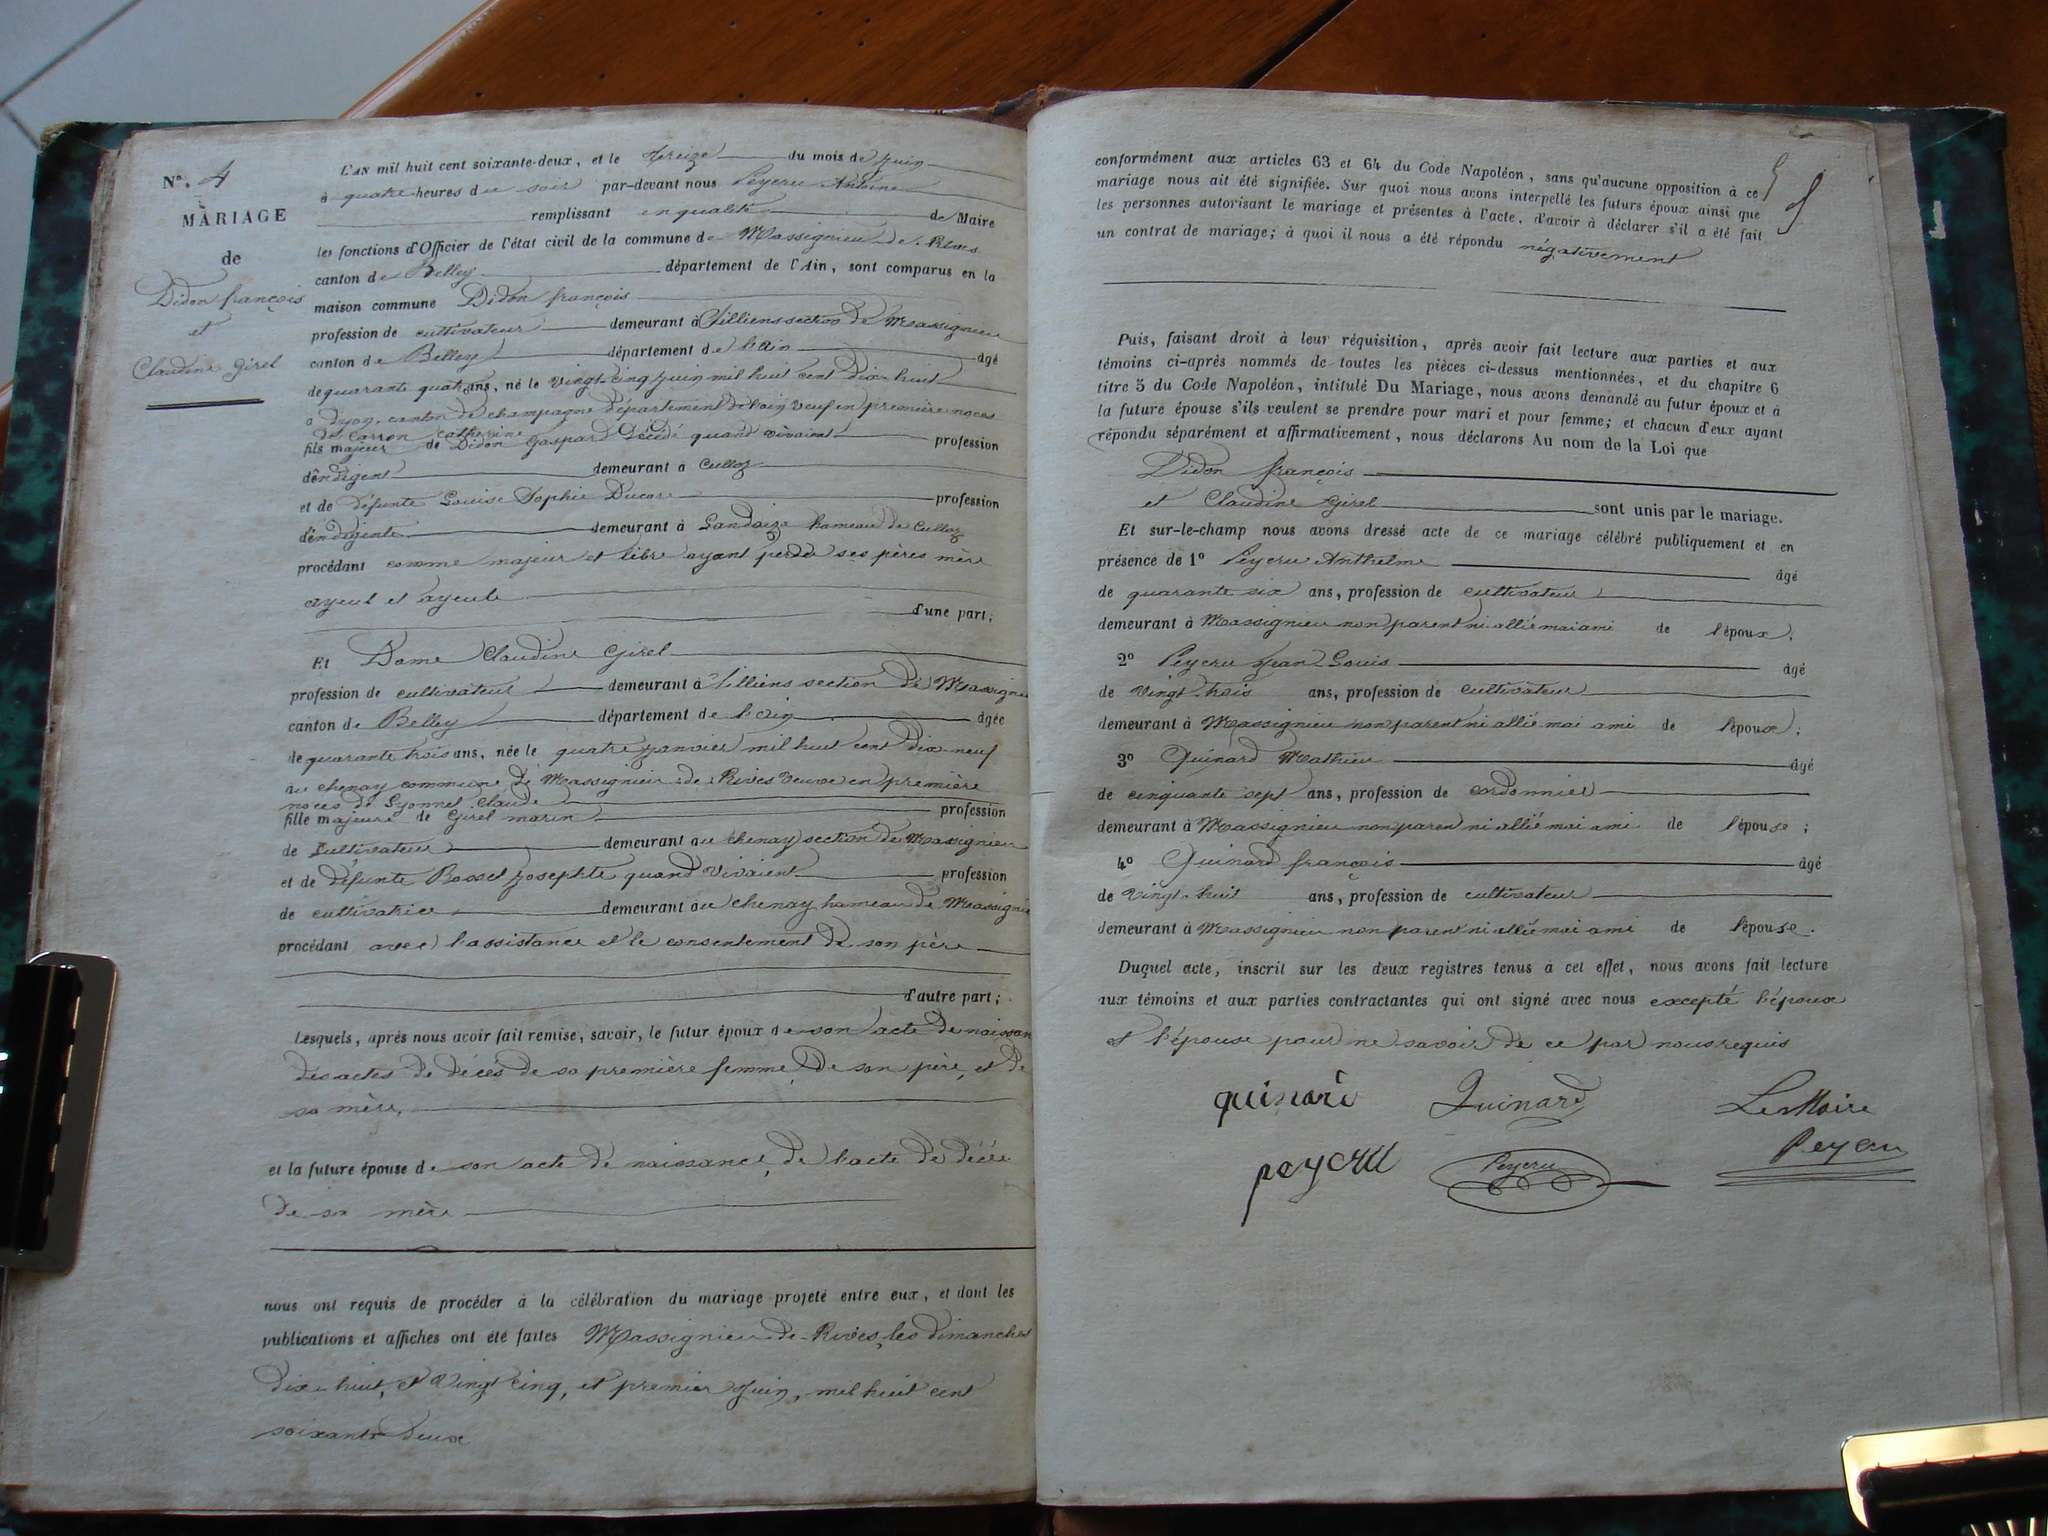 N°. 4
MARIAGE
de
Didon françois
et
Claudine Girel
L'AN mil huit cent soixante-deux, et le treize du mois de Juin
à quatre heures du soir par-devant nous Peyeru Antoine
remplissant en qualité de Maire
les fonctions d'Officier de l'état civil de la commune de Massignieu-de-Rives
canton de Belley département de l'Ain, sont comparus en la
maison commune Didon françois
profession de cultivateur demeurant à Lilliens section de Massignieu
canton de Belley département de l'ain âgé
de quarante quatre ans, né le vingt-cinq Juin mil huit cent dix-huit
à canton de champagne département de l'ain veuf en première noces
de Carron catherine
fils majeur de Didon Gaspard Décédé quand vivait profession
d'indigent demeurant à Culloz
et de défunte Louise Sophie Ducore profession
d'indigente demeurant à Landaize hameau de Culloz
procédant comme majeur et libre ayant perdu ses pères mère
ayeul et ayeule
d'une part;
Et Dame Claudine Girel
profession de cultivateur demeurant à Lilliens section de Massignieu
canton de Belley département de l'ain âgée
de quarante trois ans, née le quatre janvier mil huit cent dix-neuf
au chenay commune de Massignieu-de-Rives veuve en première
noces de Lyonnet Claude
fille majeure de Girel marin profession
de Cultivateur demeurant au chenay section de Massignieu
et de défunte Bossel Josephte quand vivaient profession
de cultivatrice demeurant au chenay hameau de Massignieu
procédant avec l'assistance et le consentement de son père
d'autre part;
Lesquels, après nous avoir fait remise, savoir, le futur époux de son acte de naissan
des actes de décès de sa première femme, de son père, et de
sa mère,
et la future épouse de son acte de naissance, de l'acte de décès
de sa mère
nous ont requis de procéder à la célébration du mariage projeté entre eux, et dont les
publications et affiches ont été faites Massignieu-de-Rives, les dimanches
dix-huit, et vingt cinq, et premier Juin, mil huit cent
soixante deux
conformément aux articles 63 et 64 du Code Napoléon, sans qu'aucune opposition à ce
mariage nous ait été signifiée. Sur quoi nous avons interpellé les futurs époux ainsi que
les personnes autorisant le mariage et présentes à l'acte, d'avoir à déclarer s'il a été fait
un contrat de mariage; à quoi il nous a été répondu négativement
Puis, faisant droit à leur réquisition, après avoir fait lecture aux parties et aux
témoins ci-après nommés de toutes les pièces ci-dessus mentionnées, et du chapitre 6
titre 5 du Code Napoléon, intitulé Du Mariage, nous avons demandé au futur époux et à
la future épouse s'ils veulent se prendre pour mari et pour femme; et chacun d'eux ayant
répondu séparément et affirmativement, nous déclarons Au nom de la Loi que
Didon françois
et Claudine Girel sont unis par le mariage.
Et sur-le-champ nous avons dressé acte de ce mariage célébré publiquement et en
présence de 1° Peyeru Anthelme âgé
de quarante six ans, profession de cultivateur
demeurant à Massignieu non parent ni allié mai ami de l'époux;
2° Peyeru Jean Louis âgé
de vingt trois ans, profession de cultivateur
demeurant à Massignieu non parent ni allié mai ami de l'époux;
3° Quinard Mathieu âgé
de cinquante sept ans, profession de cordonnier
demeurant à Massignieu non paren ni allié mai ami de l'épouse;
4° Quinard françois âgé
de vingt-huit ans, profession de cultivateur
demeurant à Massignieu non parent ni allié mai ami de l'épouse.
Duquel acte, inscrit sur les deux registres tenus à cet effet, nous avons fait lecture
aux témoins et aux parties contractantes qui ont signé avec nous excepté l'époux
et l'épouse pour ne savoir de ce par nous requis
quinard Quinard Le Maire
peyeru Peyeru Peyeru